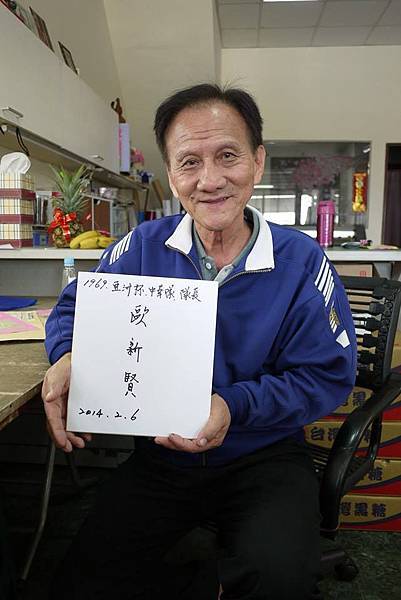 1969. 亞洲杯. 中華隊 隊長
歐新賢
2014. 2. 6
台灣黑糖
灣黑糖